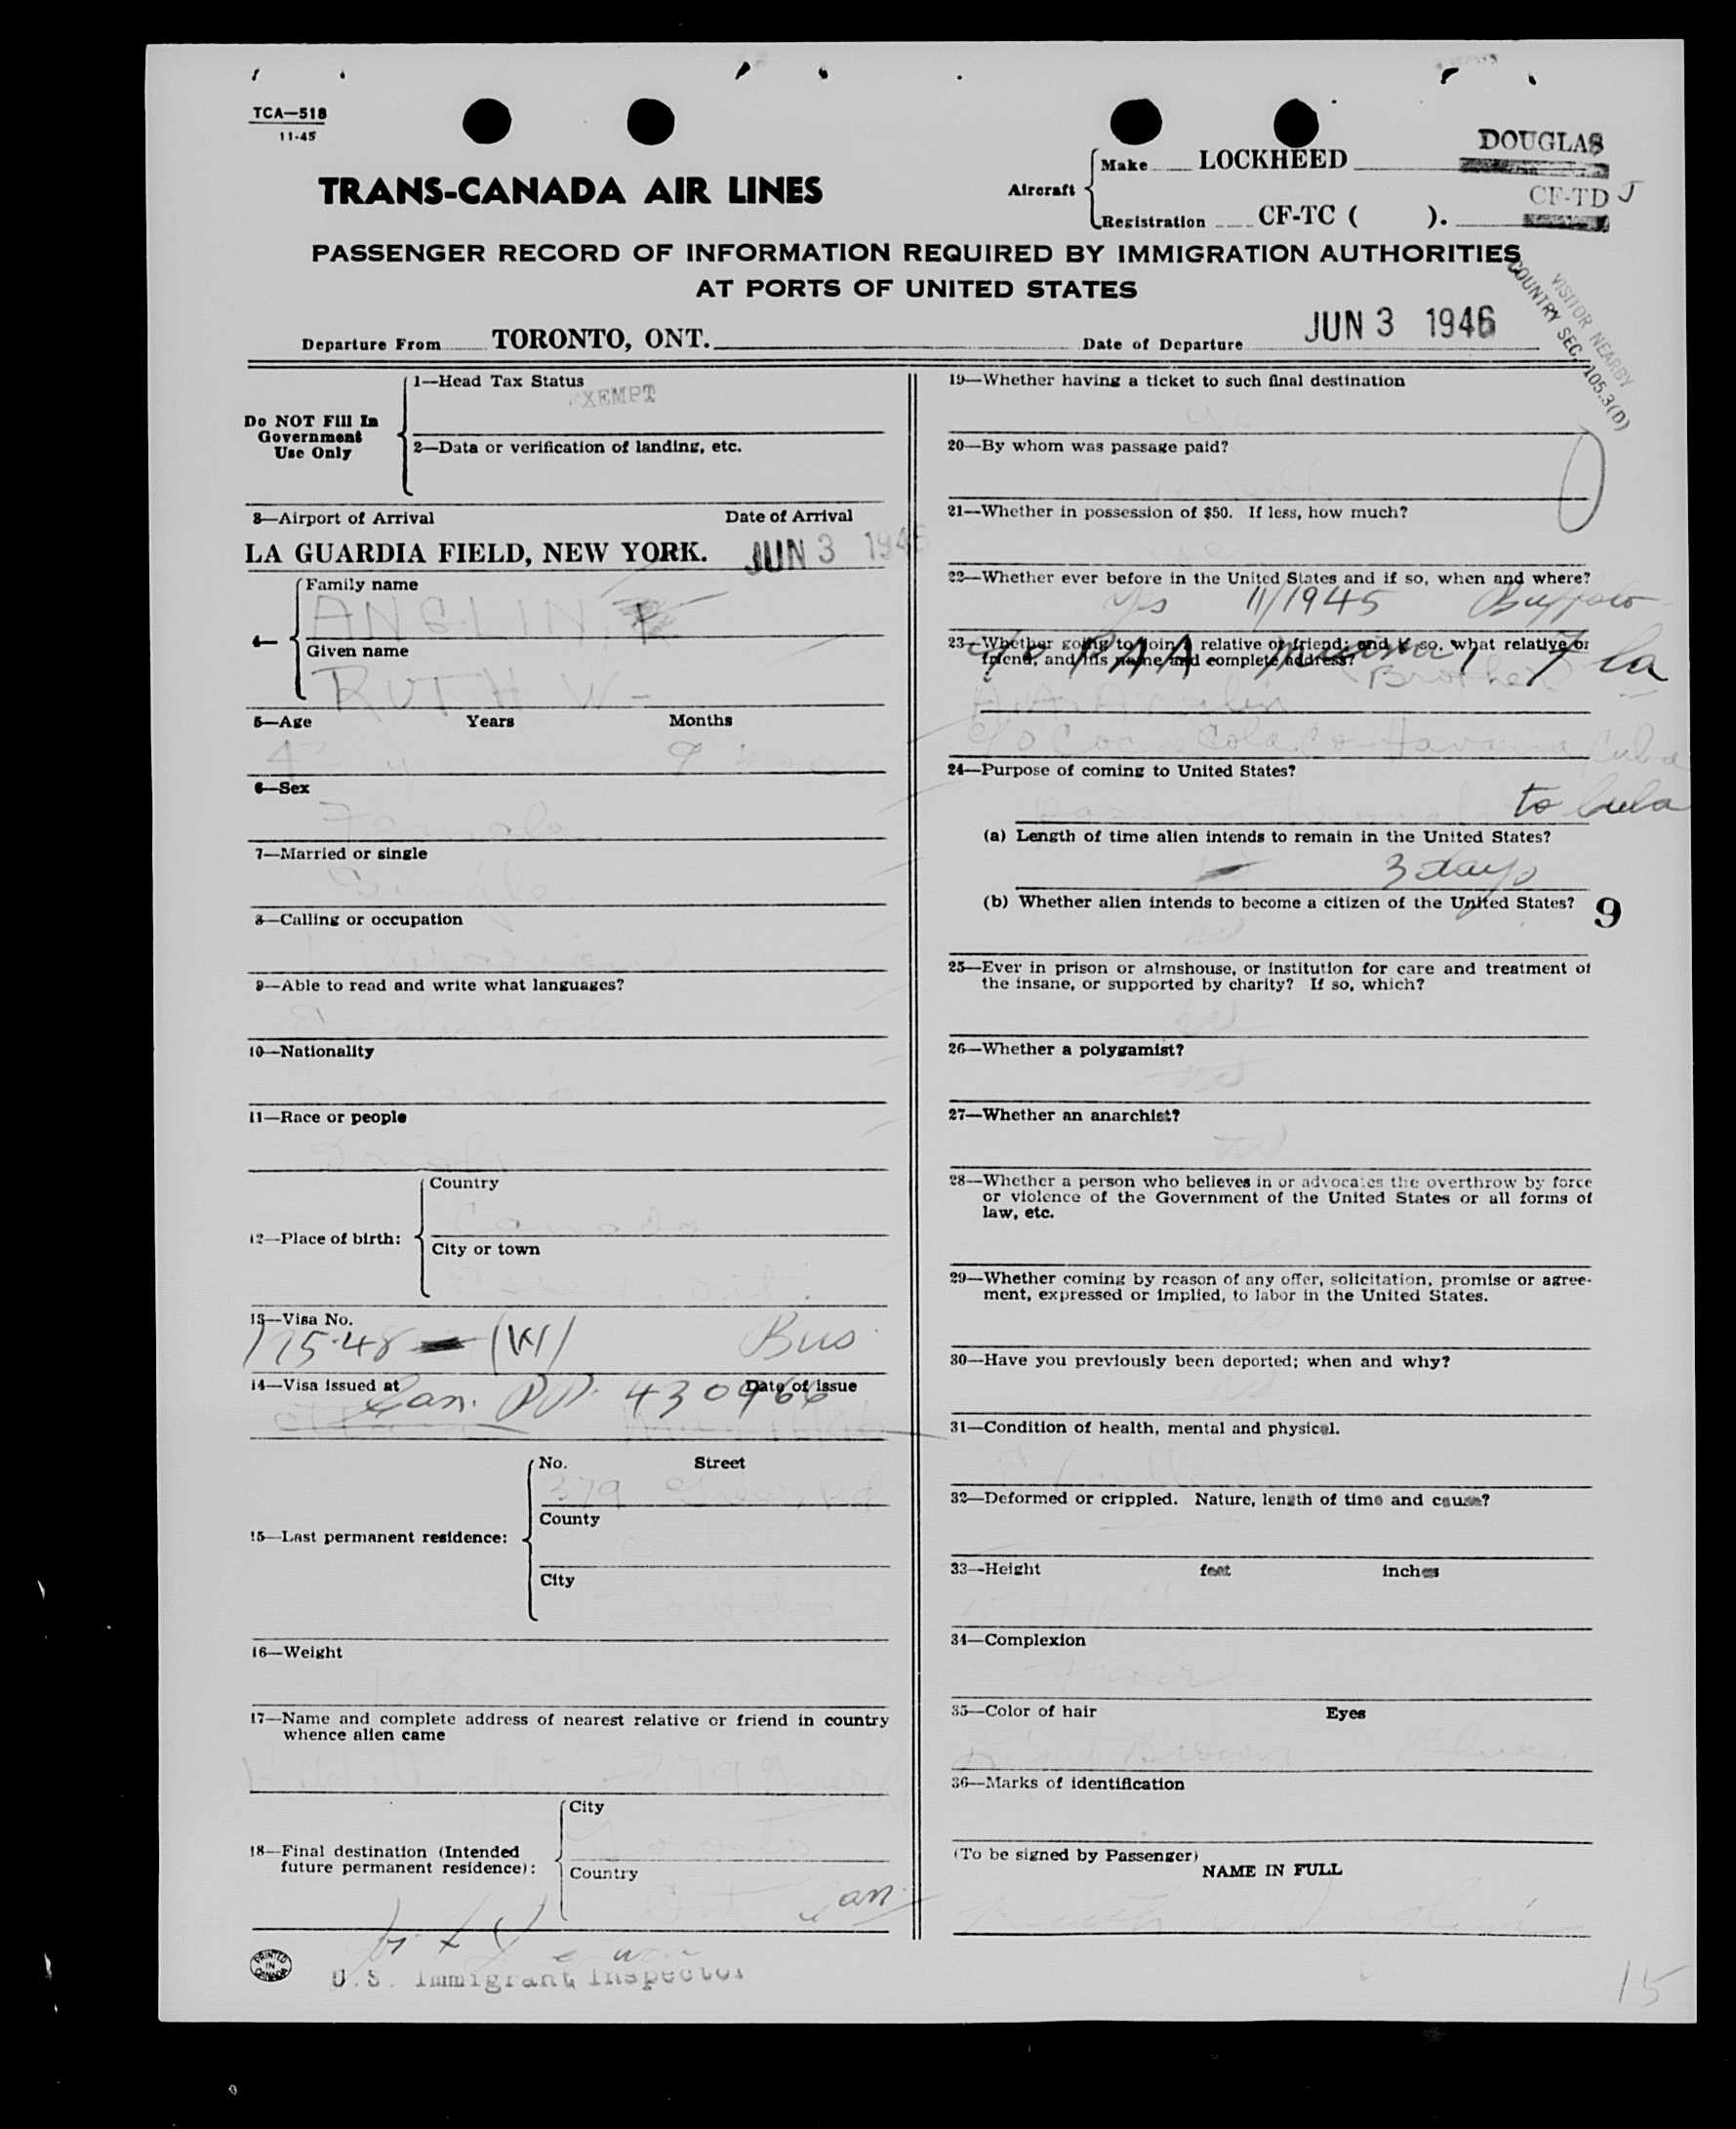 TCA—518
11-45
TRANS-CANADA AIR LINES
Aircraft
Make LOCKHEED
DOUGLAS
Registration CF-TC ( ).
CF-TD J
PASSENGER RECORD OF INFORMATION REQUIRED BY IMMIGRATION AUTHORITIES
AT PORTS OF UNITED STATES
VISITOR NEARBY
COUNTRY SEC. 105.3(D)
Departure From TORONTO, ONT.
Date of Departure JUN 3 1946
Do NOT Fill In
Government
Use Only
1—Head Tax Status
EXEMPT
2—Data or verification of landing, etc.
3—Airport of Arrival Date of Arrival
LA GUARDIA FIELD, NEW YORK. JUN 3 1946
4—
Family name
ANGLIN, F
Given name
RUTH W-
5—Age Years Months
4 9
6—Sex
Female
7—Married or single
Single
8—Calling or occupation
9—Able to read and write what languages?
10—Nationality
11—Race or people
12—Place of birth:
Country
Canada
City or town
Ont.
13—Visa No.
175.48 (W) Bus
14—Visa issued at Date of issue
Can. PP. 430966
15—Last permanent residence:
No. Street
379
County
City
16—Weight
17—Name and complete address of nearest relative or friend in country
whence alien came
18—Final destination (Intended
future permanent residence):
City
Toronto
Country
Can.
PRINTED
IN
CANADA
U.S. Immigrant Inspector
19—Whether having a ticket to such final destination
20—By whom was passage paid?
21—Whether in possession of $50. If less, how much?
22—Whether ever before in the United States and if so, when and where?
Yes 11/1945 Buffalo
23—Whether going to join a relative or friend; and if so, what relative or
friend, and his name and complete address?
c/o PAA Miami, Fla
Brother
A.A. Anglin
c/o Coca Cola Co Havana Cuba
24—Purpose of coming to United States?
to Cuba
(a) Length of time alien intends to remain in the United States?
3 days
(b) Whether alien intends to become a citizen of the United States?
9
no
25—Ever in prison or almshouse, or institution for care and treatment of
the insane, or supported by charity? If so, which?
no
26—Whether a polygamist?
no
27—Whether an anarchist?
no
28—Whether a person who believes in or advocates the overthrow by force
or violence of the Government of the United States or all forms of
law, etc.
no
29—Whether coming by reason of any offer, solicitation, promise or agree-
ment, expressed or implied, to labor in the United States.
no
30—Have you previously been deported; when and why?
no
31—Condition of health, mental and physical.
Excellent
32—Deformed or crippled. Nature, length of time and cause?
33—Height feet inches
34—Complexion
Fair
35—Color of hair Eyes
Light Brown Blue
36—Marks of identification
(To be signed by Passenger)
NAME IN FULL
15